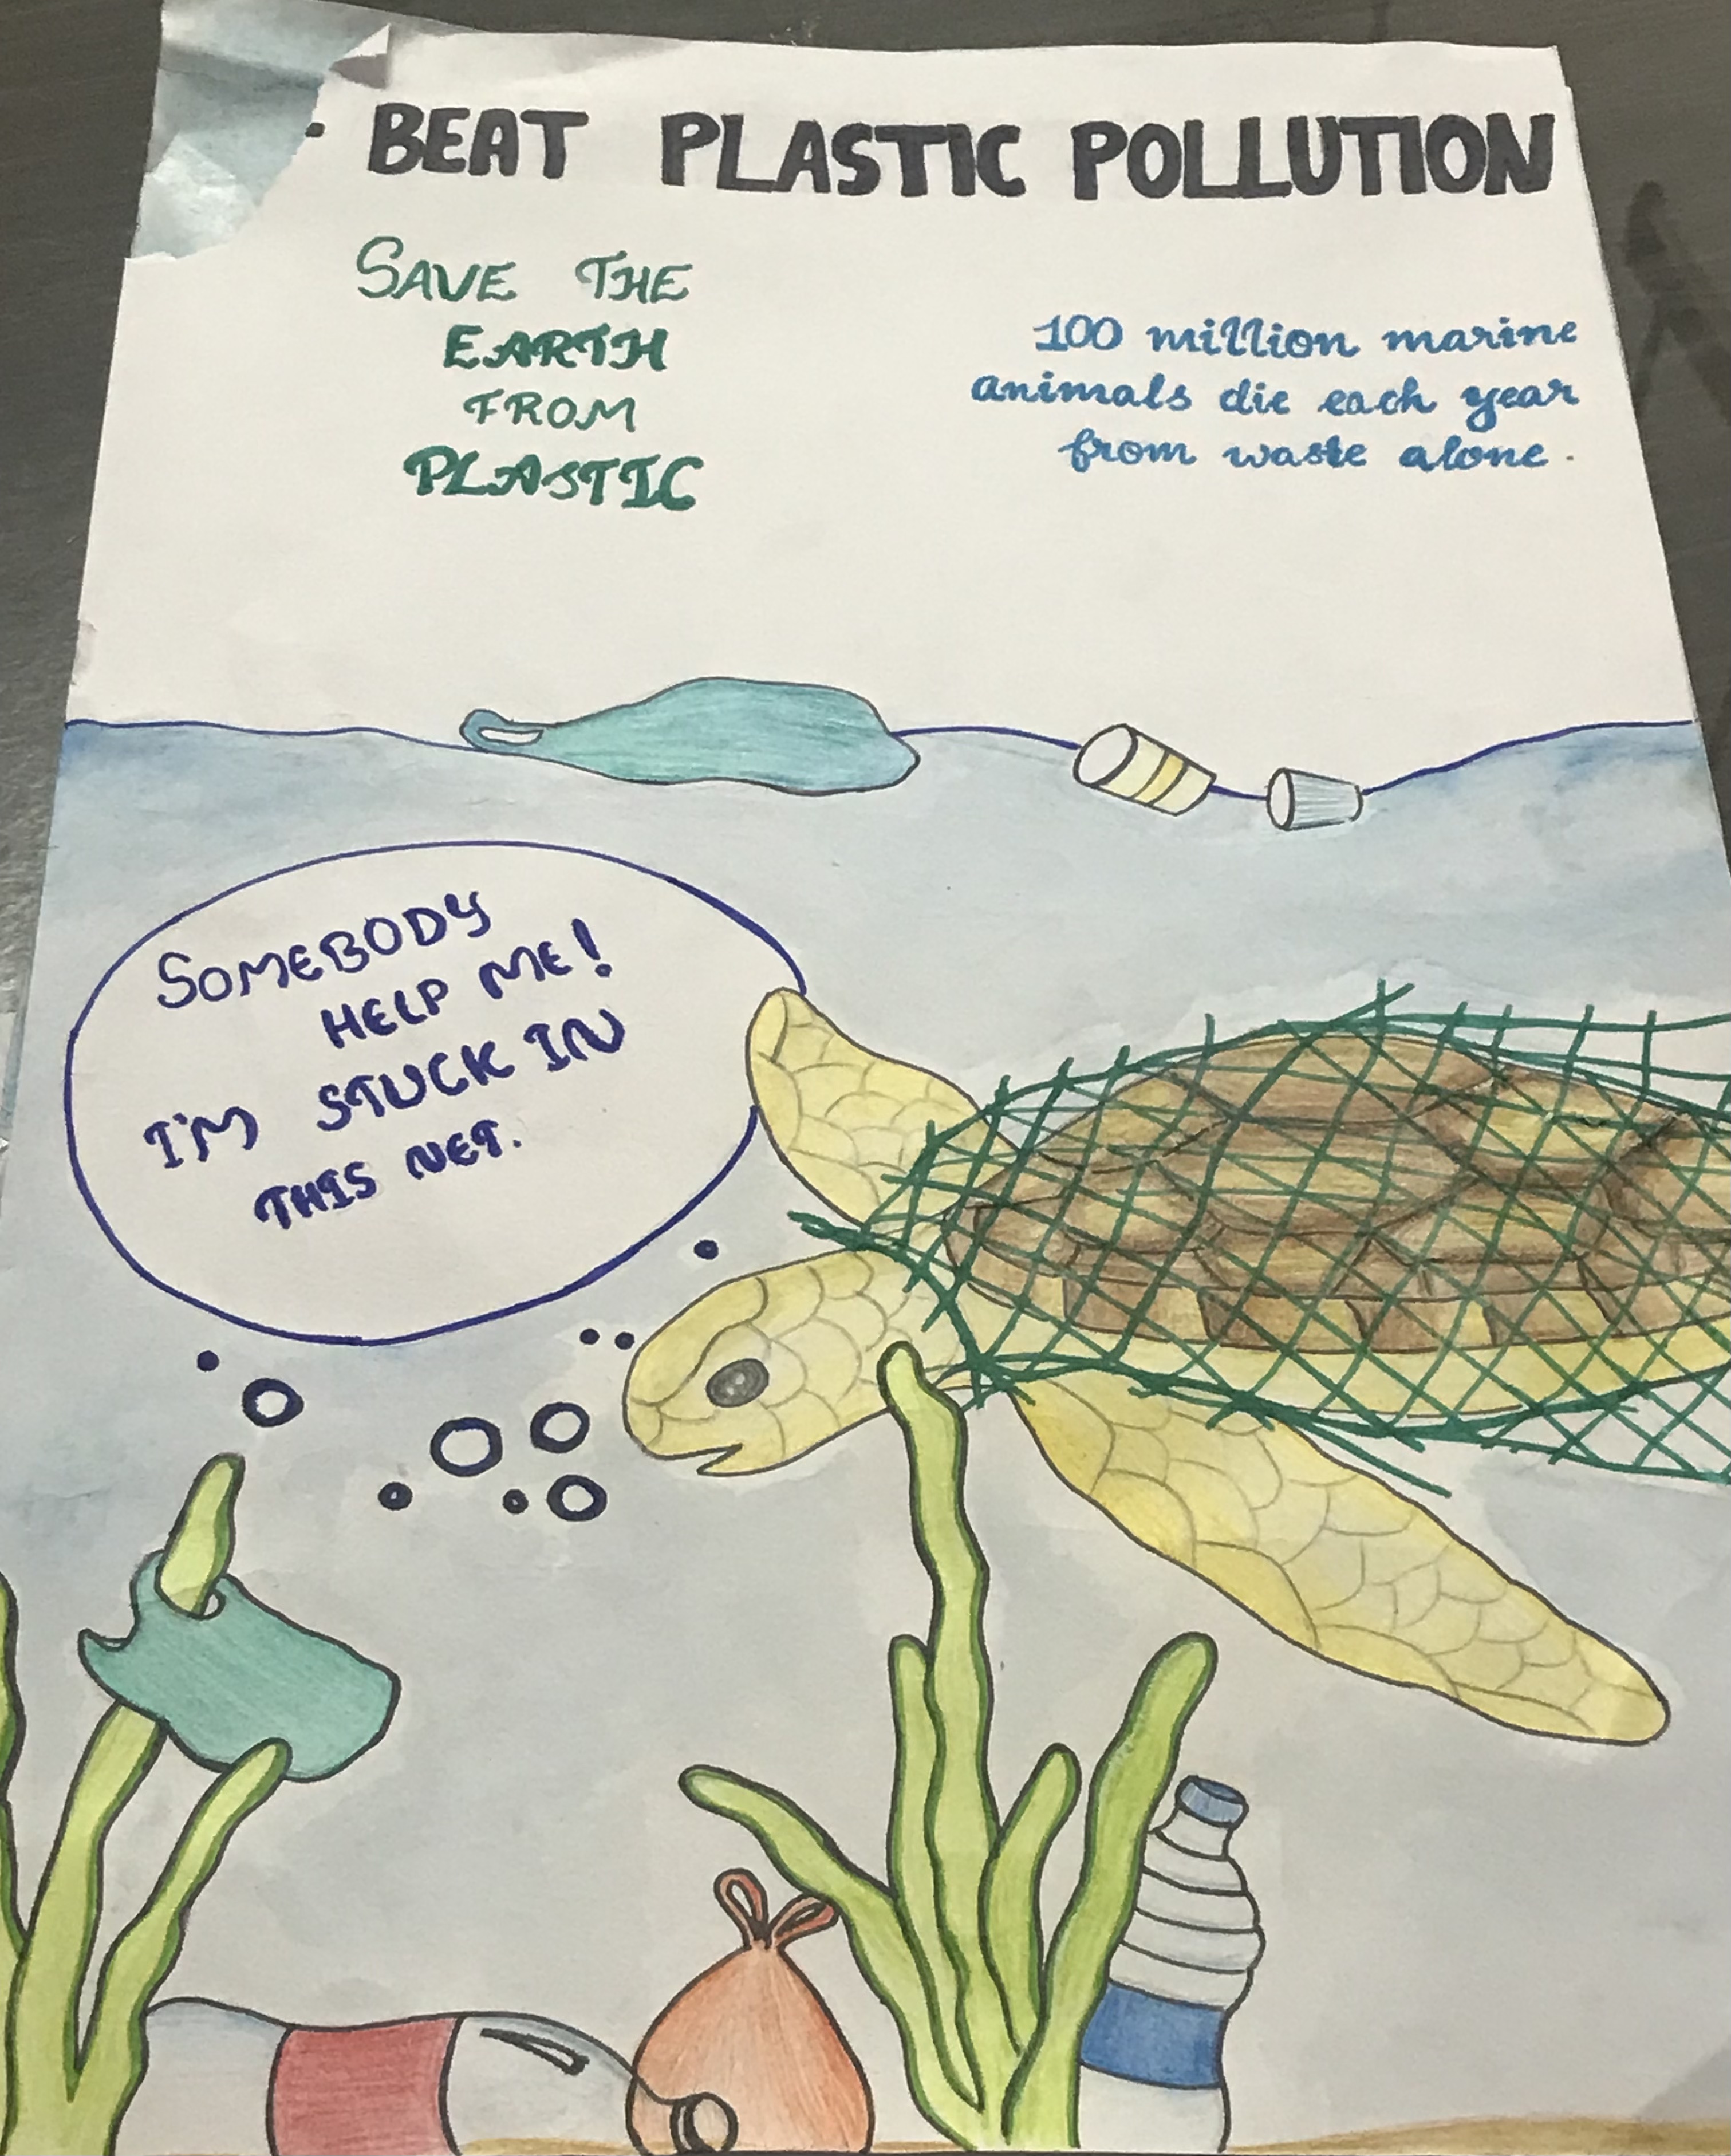 - BEAT PLASTIC POLLUTION
SAVE THE
EARTH
FROM
PLASTIC
100 million marine
animals die each year
from waste alone.
SOMEBODY
HELP ME!
I'M STUCK IN
THIS NET.